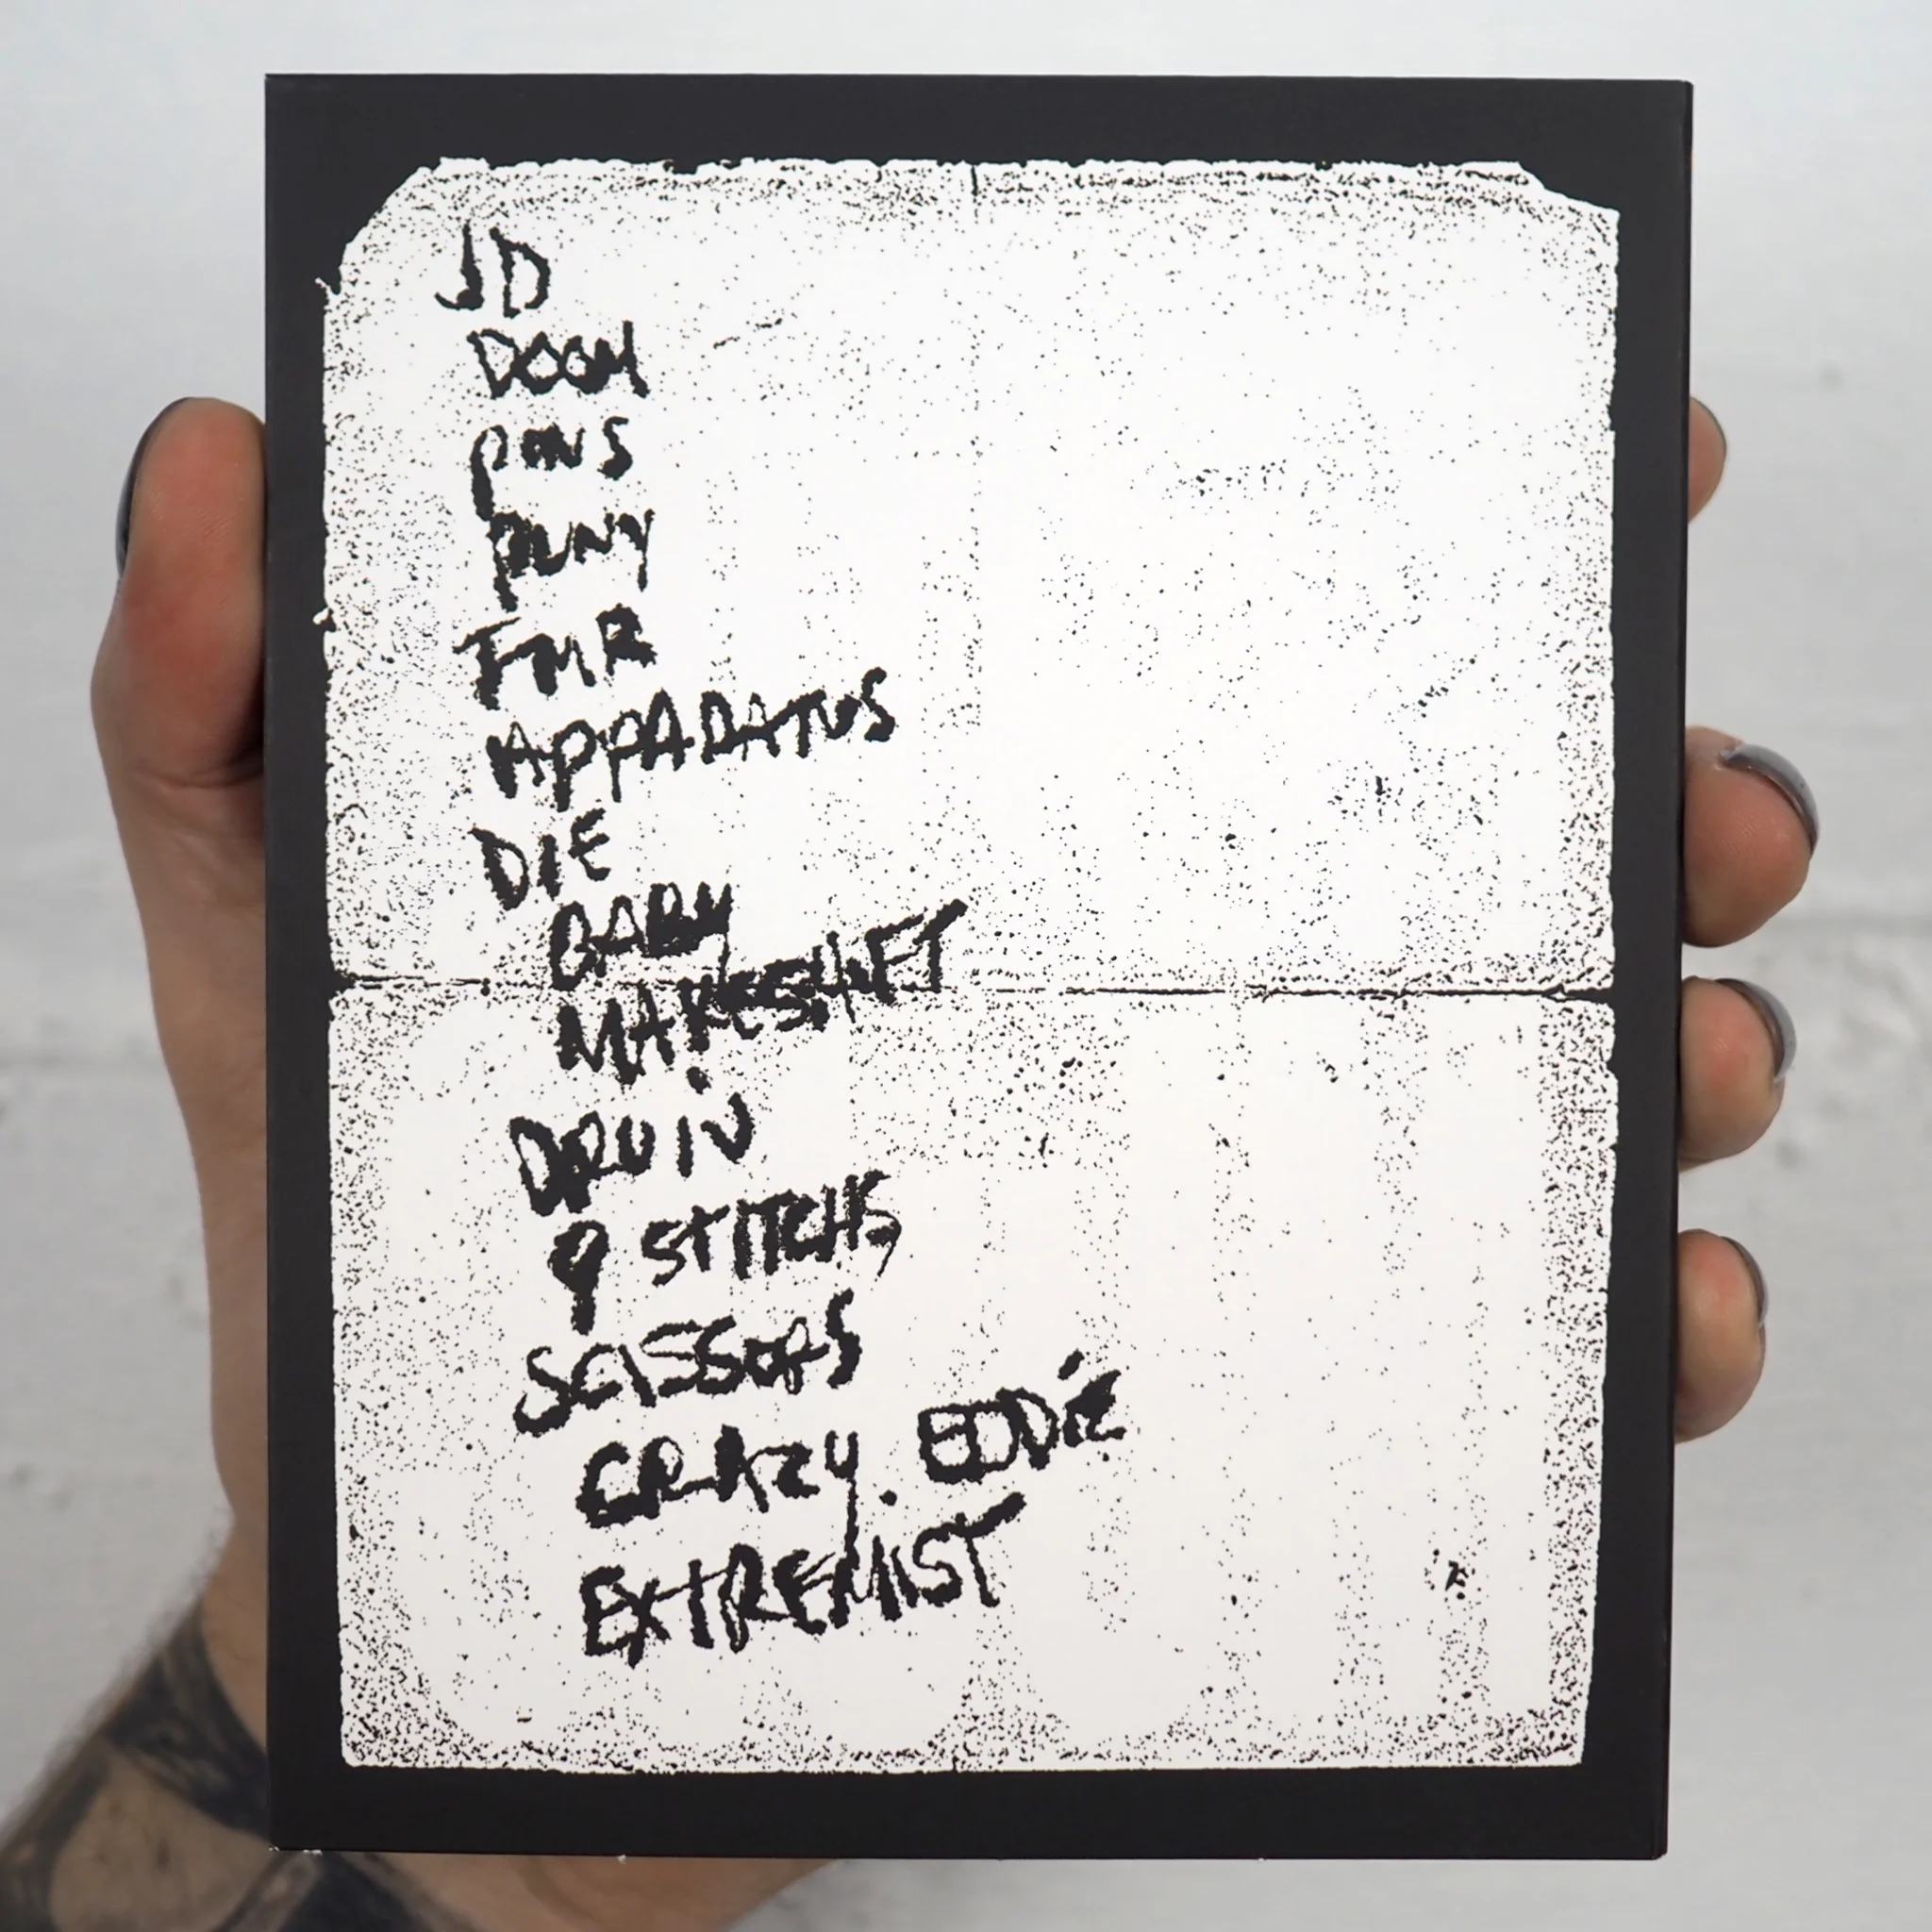 JD
DOOM
PONS
PUNY
FMR
APPARATUS
DIE
BABY
MAKESHIFT
DRUIN
9 STITCHS
SCISSORS
CRAZY. EDDIE
EXTREMIST